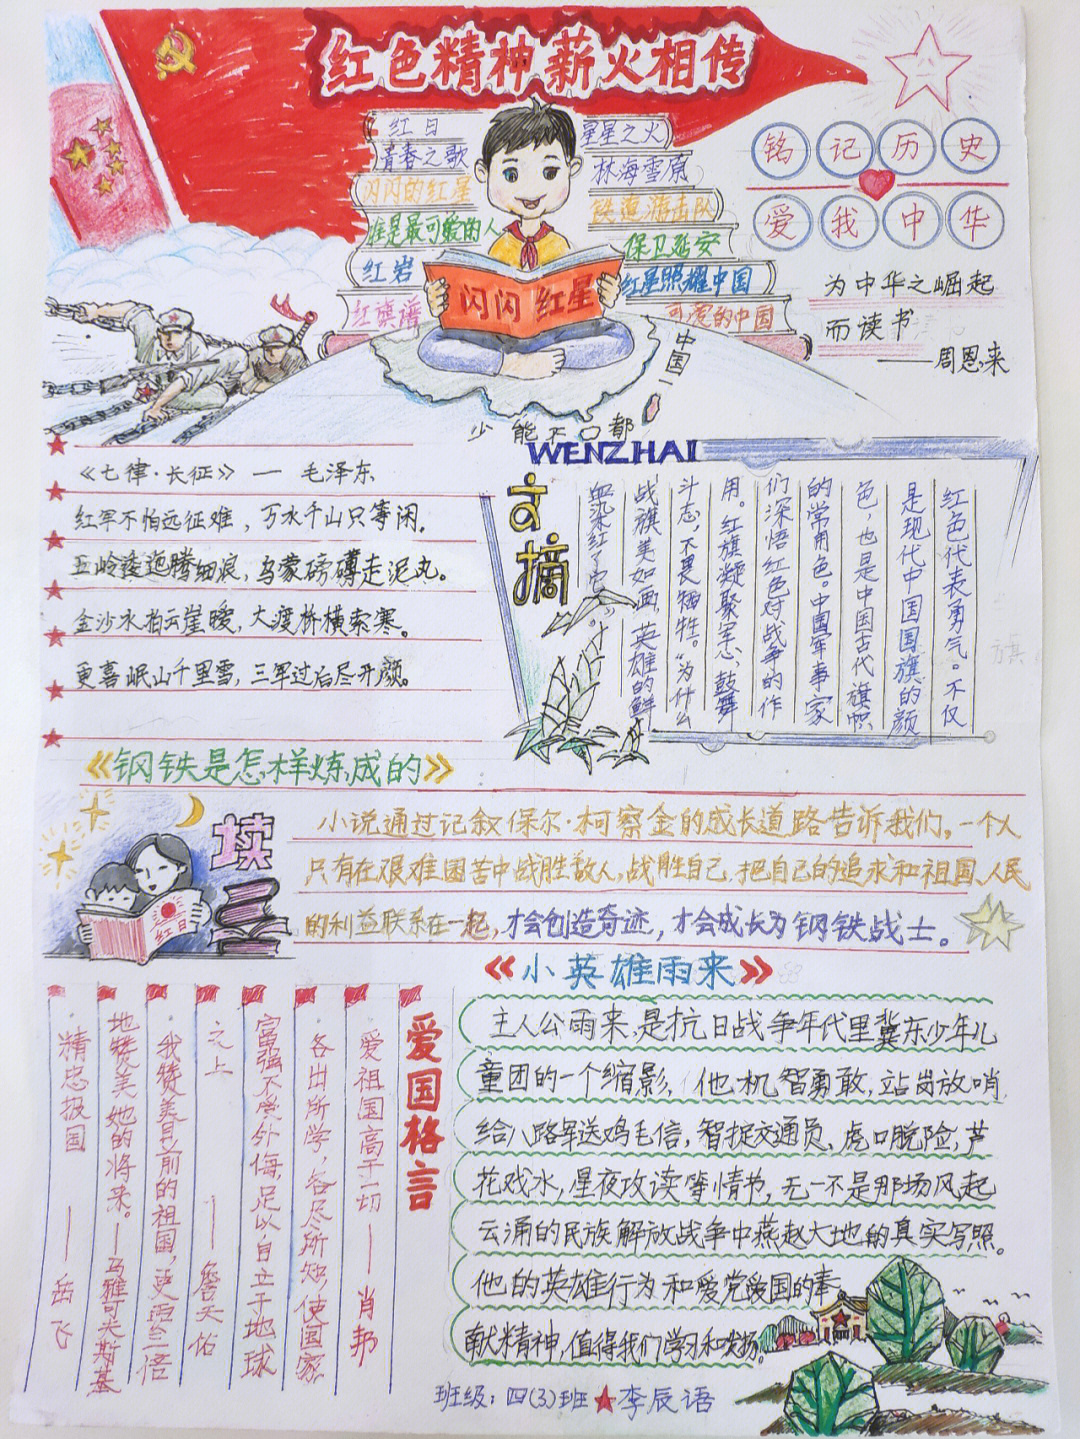 红色精神薪火相传
红日
青春之歌
闪闪的红星
谁是最可爱的人
红岩
红旗谱
星星之火
林海雪原
铁道游击队
保卫延安
红星照耀中国
可爱的中国
闪闪红星
铭记历史
爱我中华
为中华之崛起
而读书
——周恩来
中国一
少能不口都
《七律·长征》— 毛泽东
红军不怕远征难，万水千山只等闲。
五岭逶迤腾细浪，乌蒙磅礴走泥丸。
金沙水拍云崖暖，大渡桥横索寒。
更喜岷山千里雪，三军过后尽开颜。
WENZHAI
文摘
红色代表勇气。不仅
是现代中国国旗的颜
色，也是中国古代旗帜
的常用色。中国军事家
们深悟红色对战争的作
用。红旗凝聚军心、鼓舞
斗志，不畏牺牲。“为什么
战旗美如画，英雄的鲜
血染红了它”。
旗
《钢铁是怎样炼成的》
读
红日
小说通过记叙保尔·柯察金的成长道路告诉我们，一个人
只有在艰难困苦中战胜敌人，战胜自己，把自己的追求和祖国、人民
的利益联系在一起，才会创造奇迹，才会成长为钢铁战士。
《小英雄雨来》
主人公雨来，是抗日战争年代里冀东少年儿
童团的一个缩影，他机智勇敢，站岗放哨
给八路军送鸡毛信，智捉交通员、虎口脱险，芦
花戏水，星夜攻读等情节，无一不是那场风起
云涌的民族解放战争中燕赵大地的真实写照。
他的英雄行为和爱党爱国的奉
献精神，值得我们学习和发扬。
爱国格言
·爱祖国高于一切——肖邦
·各出所学，各尽所知，使国家
富强不受外侮，足以自立于地球
之上 ——詹天佑
·我赞美目前的祖国，更要三倍
地赞美她的将来。——马雅可夫斯基
·精忠报国 ——岳飞
班级：四(3)班★李辰语